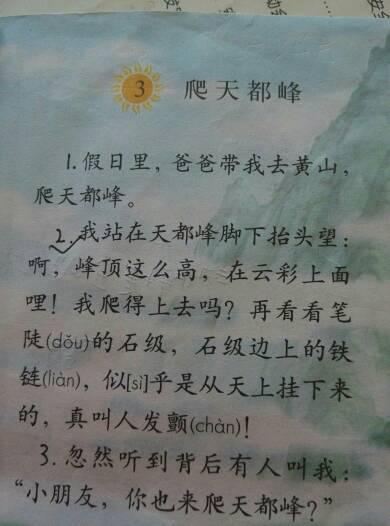 3 爬天都峰
1.假日里，爸爸带我去黄山，
爬天都峰。
2.我站在天都峰脚下抬头望：
啊，峰顶这么高，在云彩上面
哩！我爬得上去吗？再看看笔
陡(dǒu)的石级，石级边上的铁
链(liàn)，似[sì]乎是从天上挂下来
的，真叫人发颤(chàn)！
3.忽然听到背后有人叫我：
“小朋友，你也来爬天都峰？”